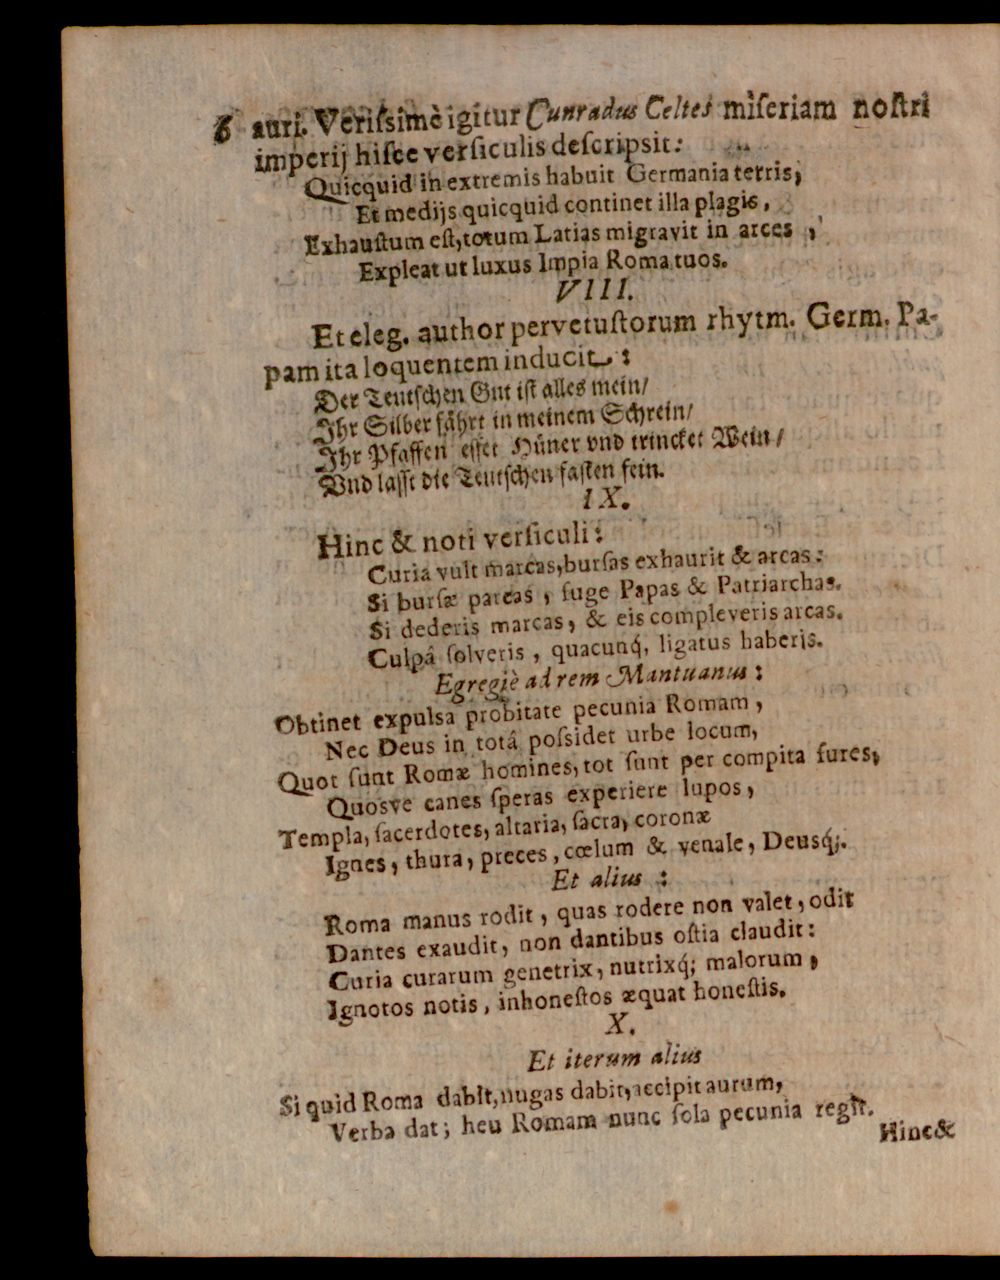 6 auri. Verisſimè igitur Cunradus Celtes miſeriam noſtri
imperij hiſce verſiculis deſcripsit:
Quicquid in extremis habuit Germania terris,
Et medijs quicquid continet illa plagis,
Exhauſtum eſt, totum Latias migravit in arces,
Expleat ut luxus Impia Roma tuos.
VIII.
Et eleg. author pervetuſtorum rhytm. Germ. Pa-
pam ita loquentem inducit:
Der Teutſchen Gut iſt alles mein/
Ihr Silber fährt in meinem Schrein/
Ihr Pfaffen eſſet Hüner vnd trincket Wein/
Vnd laſſt die Teutſchen faſten fein.
IX.
Hinc & noti verſiculi:
Curia vult marcas, burſas exhaurit & arcas:
Si burſæ parcas, fuge Papas & Patriarchas.
Si dederis marcas, & eis compleveris arcas.
Culpâ ſolveris, quacunq́, ligatus haberis.
Egregiè ad rem Mantuanus:
Obtinet expulsa probitate pecunia Romam,
Nec Deus in totâ poſsidet urbe locum,
Quot ſunt Romæ homines, tot ſunt per compita fures,
Quosve canes ſperas experiere lupos,
Templa, ſacerdotes, altaria, ſacra, coronæ
Ignes, thura, preces, cœlum & venale, Deusq́;.
Et alius:
Roma manus rodit, quas rodere non valet, odit
Dantes exaudit, non dantibus oſtia claudit:
Curia curarum genetrix, nutrixq́; malorum,
Ignotos notis, inhoneſtos æquat honeſtis.
X.
Et iterum alius
Si quid Roma dabit, nugas dabit, accipit aurum,
Verba dat; heu Romam nunc ſola pecunia regit.
Hinc &